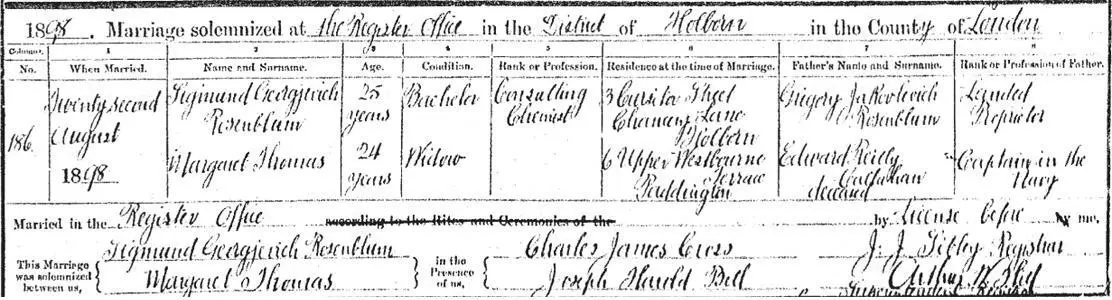 1898. Marriage solemnized at the Register Office in the District of Holborn in the County of London
Columns 1 2 3 4 5 6 7 8
No. When Married. Name and Surname. Age. Condition. Rank or Profession. Residence at the time of Marriage. Father's Name and Surname. Rank or Profession of Father.
186 Twenty second August 1898
Sigmund Georgjevich Rosenblum 25 years Bachelor Consulting Chemist 3 Cursitor Street Chancery Lane Holborn Grigory Jakovlevich Rosenblum Landed Proprietor
Margaret Thomas 24 years Widow 6 Upper Westbourne Terrace Paddington Edward Reilly Callahan deceased Captain in the Navy
Married in the Register Office according to the Rites and Ceremonies of the by License before by me,
This Marriage was solemnized between us, Sigmund Georgjevich Rosenblum Margaret Thomas
in the Presence of us, Charles James Cross Joseph Harold Bell
J. J. Sibley Registrar
Arthur W.
Superintendent Registrar